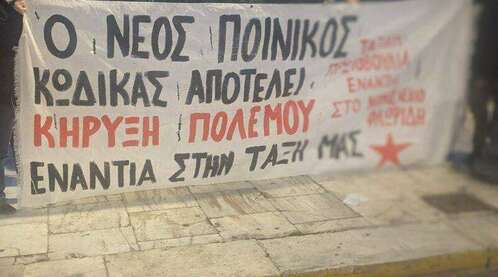 Ο ΝΕΟΣ ΠΟΙΝΙΚΟΣ
ΚΩΔΙΚΑΣ ΑΠΟΤΕΛΕΙ
ΚΗΡΥΞΗ ΠΟΛΕΜΟΥ
ΕΝΑΝΤΙΑ ΣΤΗΝ ΤΑΞΗ ΜΑΣ
ΤΑΞΙΚΗ
ΠΡΩΤΟΒΟΥΛΙΑ
ΕΝΑΝΤΙΑ
ΣΤΟ ΝΟΜΟ
ΦΛΩΡΙΔΗ